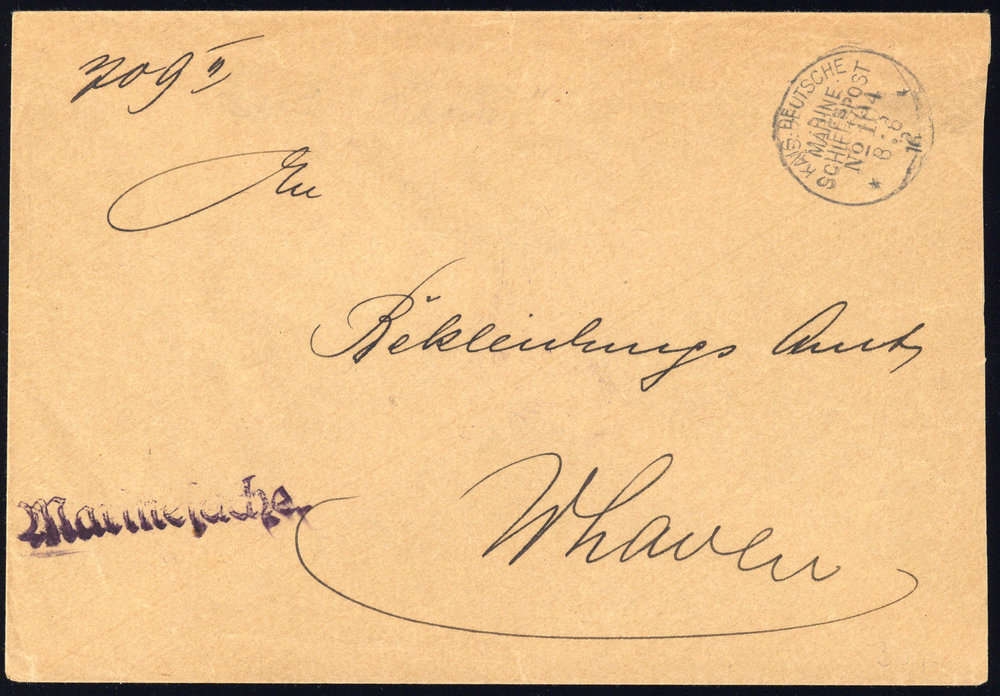 KAIS. DEUTSCHE
MARINE-
SCHIFFSPOST
No 164
8.8
16
An
Bekleidungs Amt
Whaven
Marinesache.